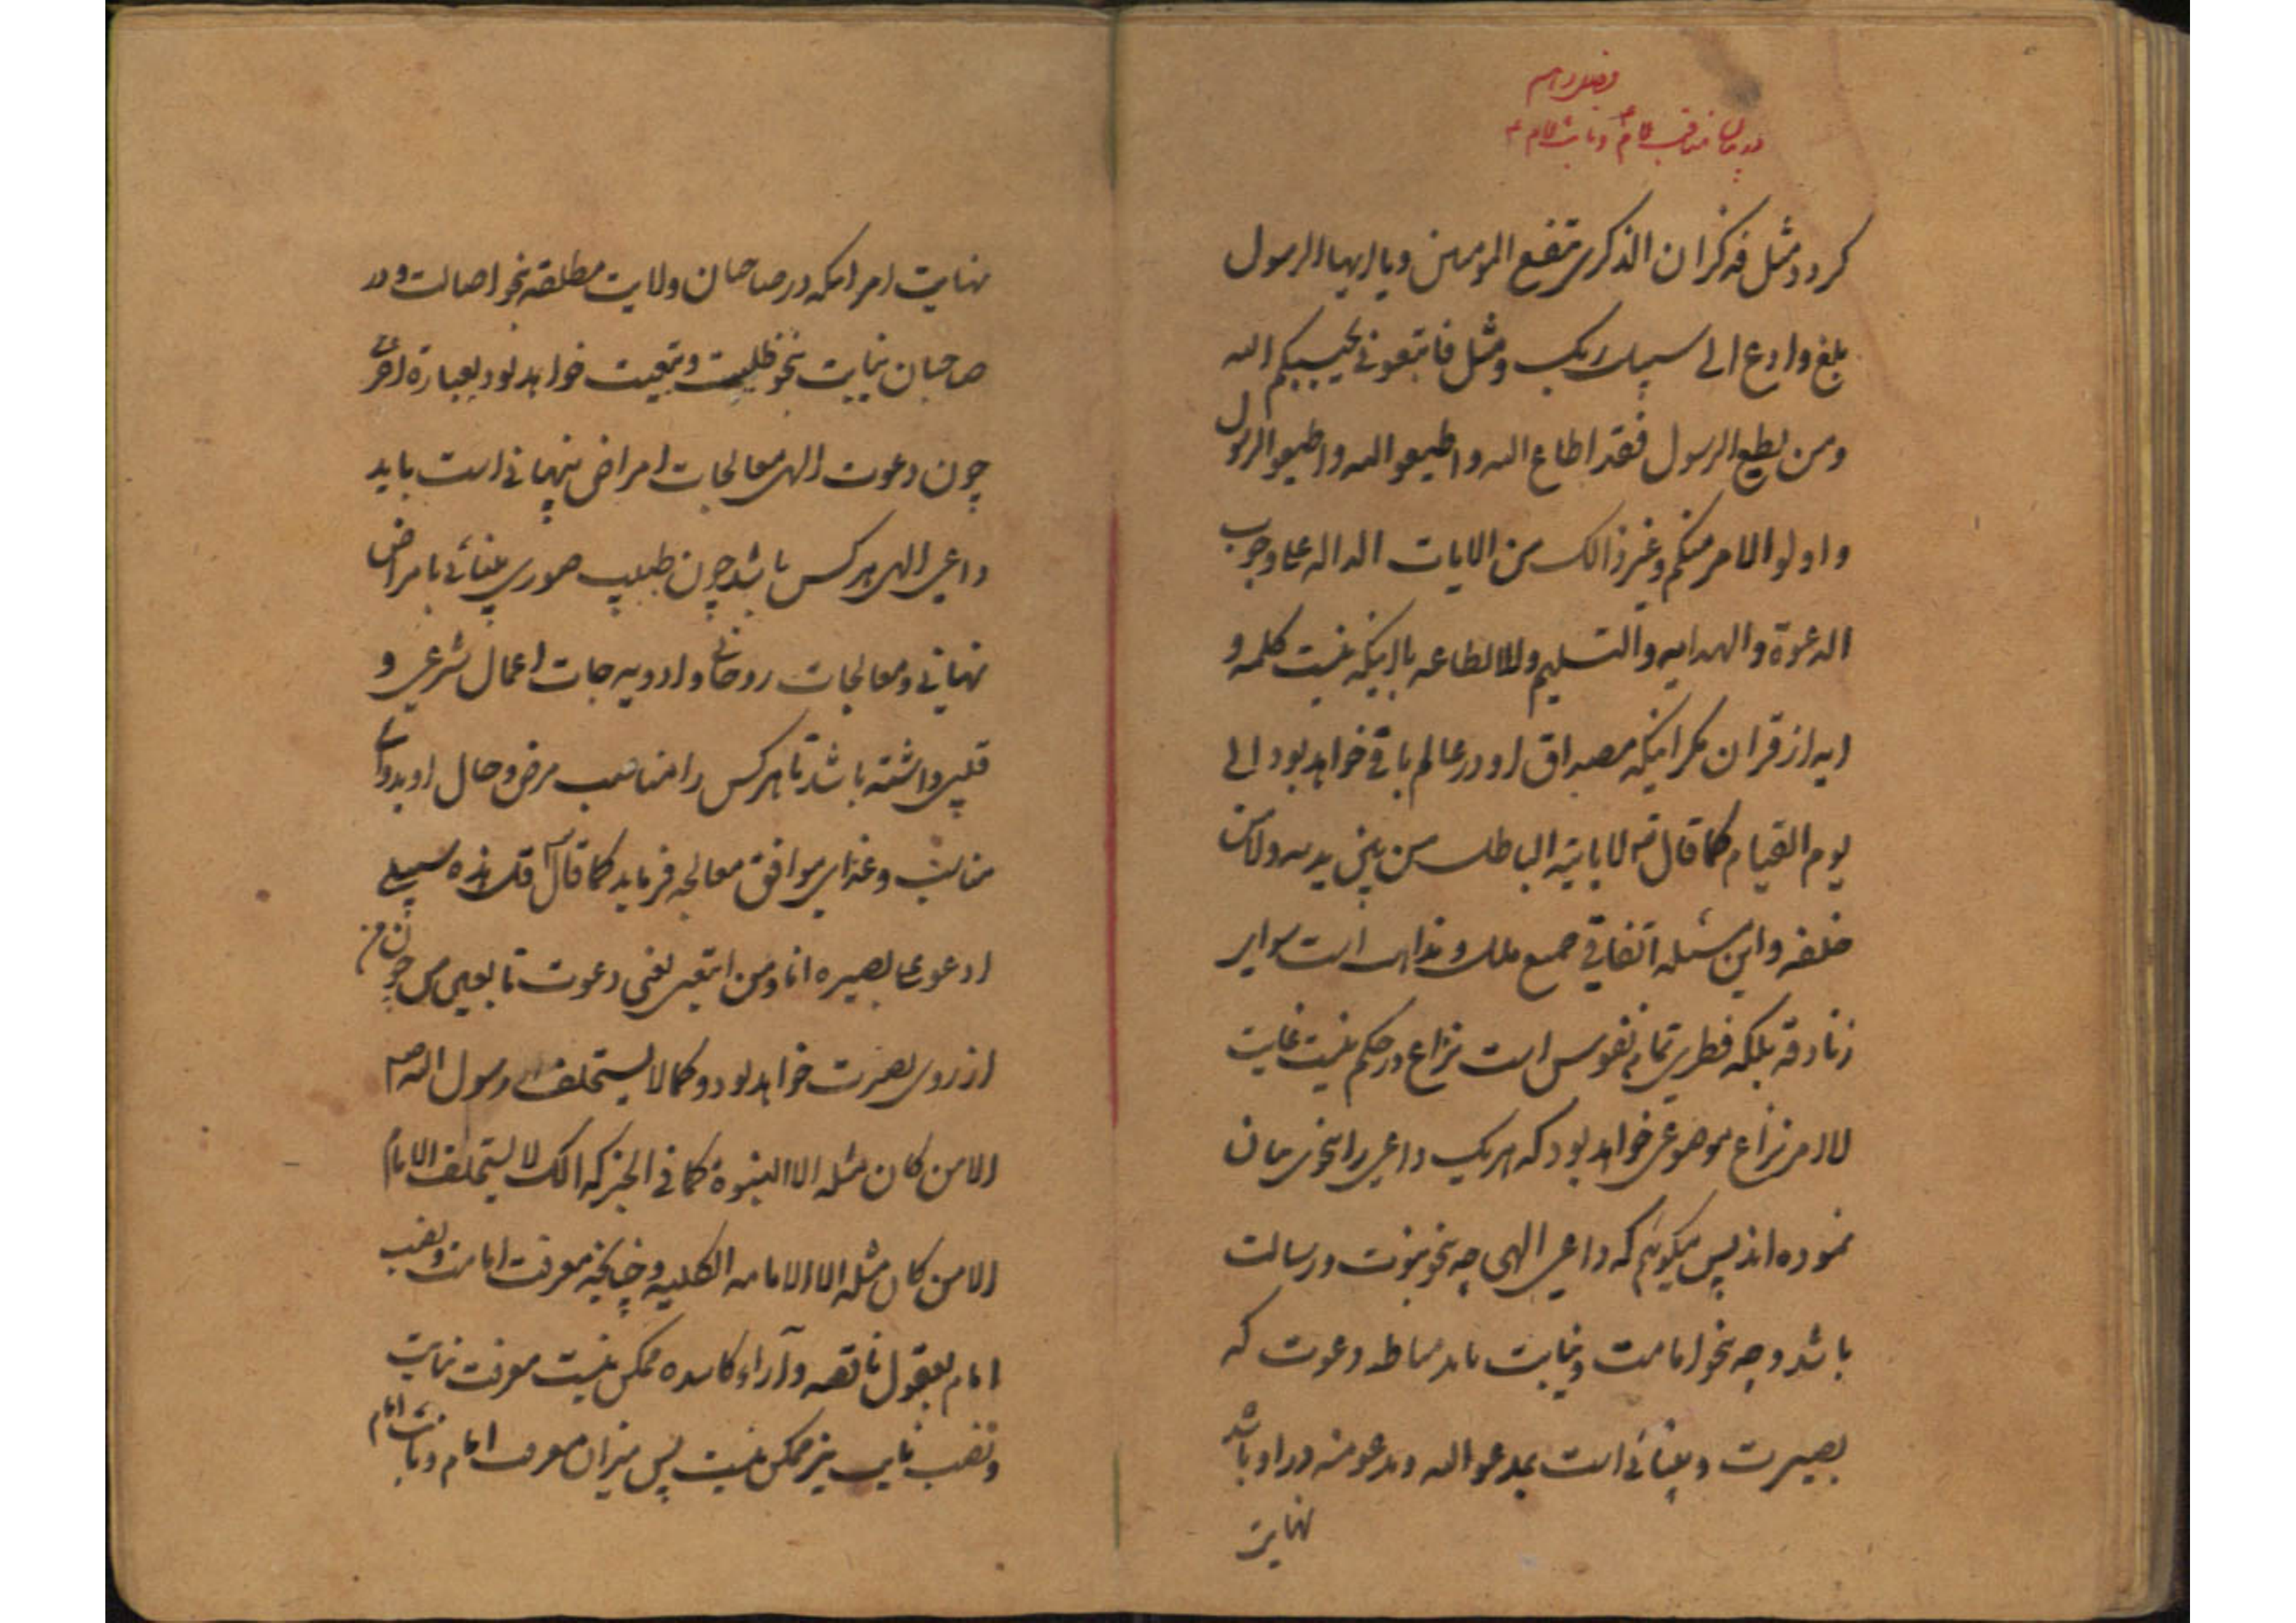 در بیان مناقب امام و نایب امام
کردد و مثل فذکر ان الذکری تنفع المومنین و یا ایها الرسول
بلغ و ادع الی سبیل ربک و مثل فاتبعونی یحببکم الله
و من یطع الرسول فقد اطاع الله و اطیعو الله و اطیعو الرسول
و اولو الامر منکم و غیر ذالک من الایات الداله علی وجوب
الدعوة و الهدایه و التسلیم و الاطاعه با اینکه نیست کلمه و
ایه از قران مکر اینکه مصداق او در عالم باقی خواهد بود الی
یوم القیام کما قال تع لا یاتیه الباطل من بین یدیه و لا من
خلفه و این مسئله اتفاقی جمیع ملل و مذاهب است سوای
زنادقه بلکه فطری تمام نفوس است نزاع در حکم نیست غایت
الامر نزاع موضوعی خواهد بود که هر یک داعی را بنحوی بیان
نموده اند پس میکویٔم که داعی الهی چه بنحو نبوت و رسالت
باشد و چه بنحو امامت و نیابت باید مناط دعوت که
بصیرت و بینایٔی است بمدعو الیه و مدعو منه در او باشد
نهایت
نهایت امر اینکه در صاحبان ولایت مطلقه بنحو اصالت و در
صاحبان نیابت بنحو ظلیت و تبعیت خواهد بود بعبارة اخری
چون دعوت الهی معالجات امراض پنهانی است باید
داعی الهی هر کس باشد چون طبیب صوری بینایٔی بامراض
نهانی و معالجات روحانی و ادویه جات اعمال شرعی و
قلبی داشته باشد تا هر کس را مناسب مرض و حال او بدوای
مناسب و غذای موافق معالجه فرماید کما قال قل هذه سبیلی
ادعو علی بصیره انا و من اتبعنی یعنی دعوت تابعین من چون من
از روی بصیرت خواهد بود و کما لا یستخلف رسول الله ص
الا من کان مثله الا النبوة کما فی الخبر کذالک لا یستخلف الامام
الا من کان مثله الا الامامه الکلیه و چنانچه معرفت امامت و نصب
امام بعقول ناقصه و آراء کاسده ممکن نیست معرفت نیابت
و نصب نایب نیز ممکن نیست پس میزان معرفت امام و نایب امام